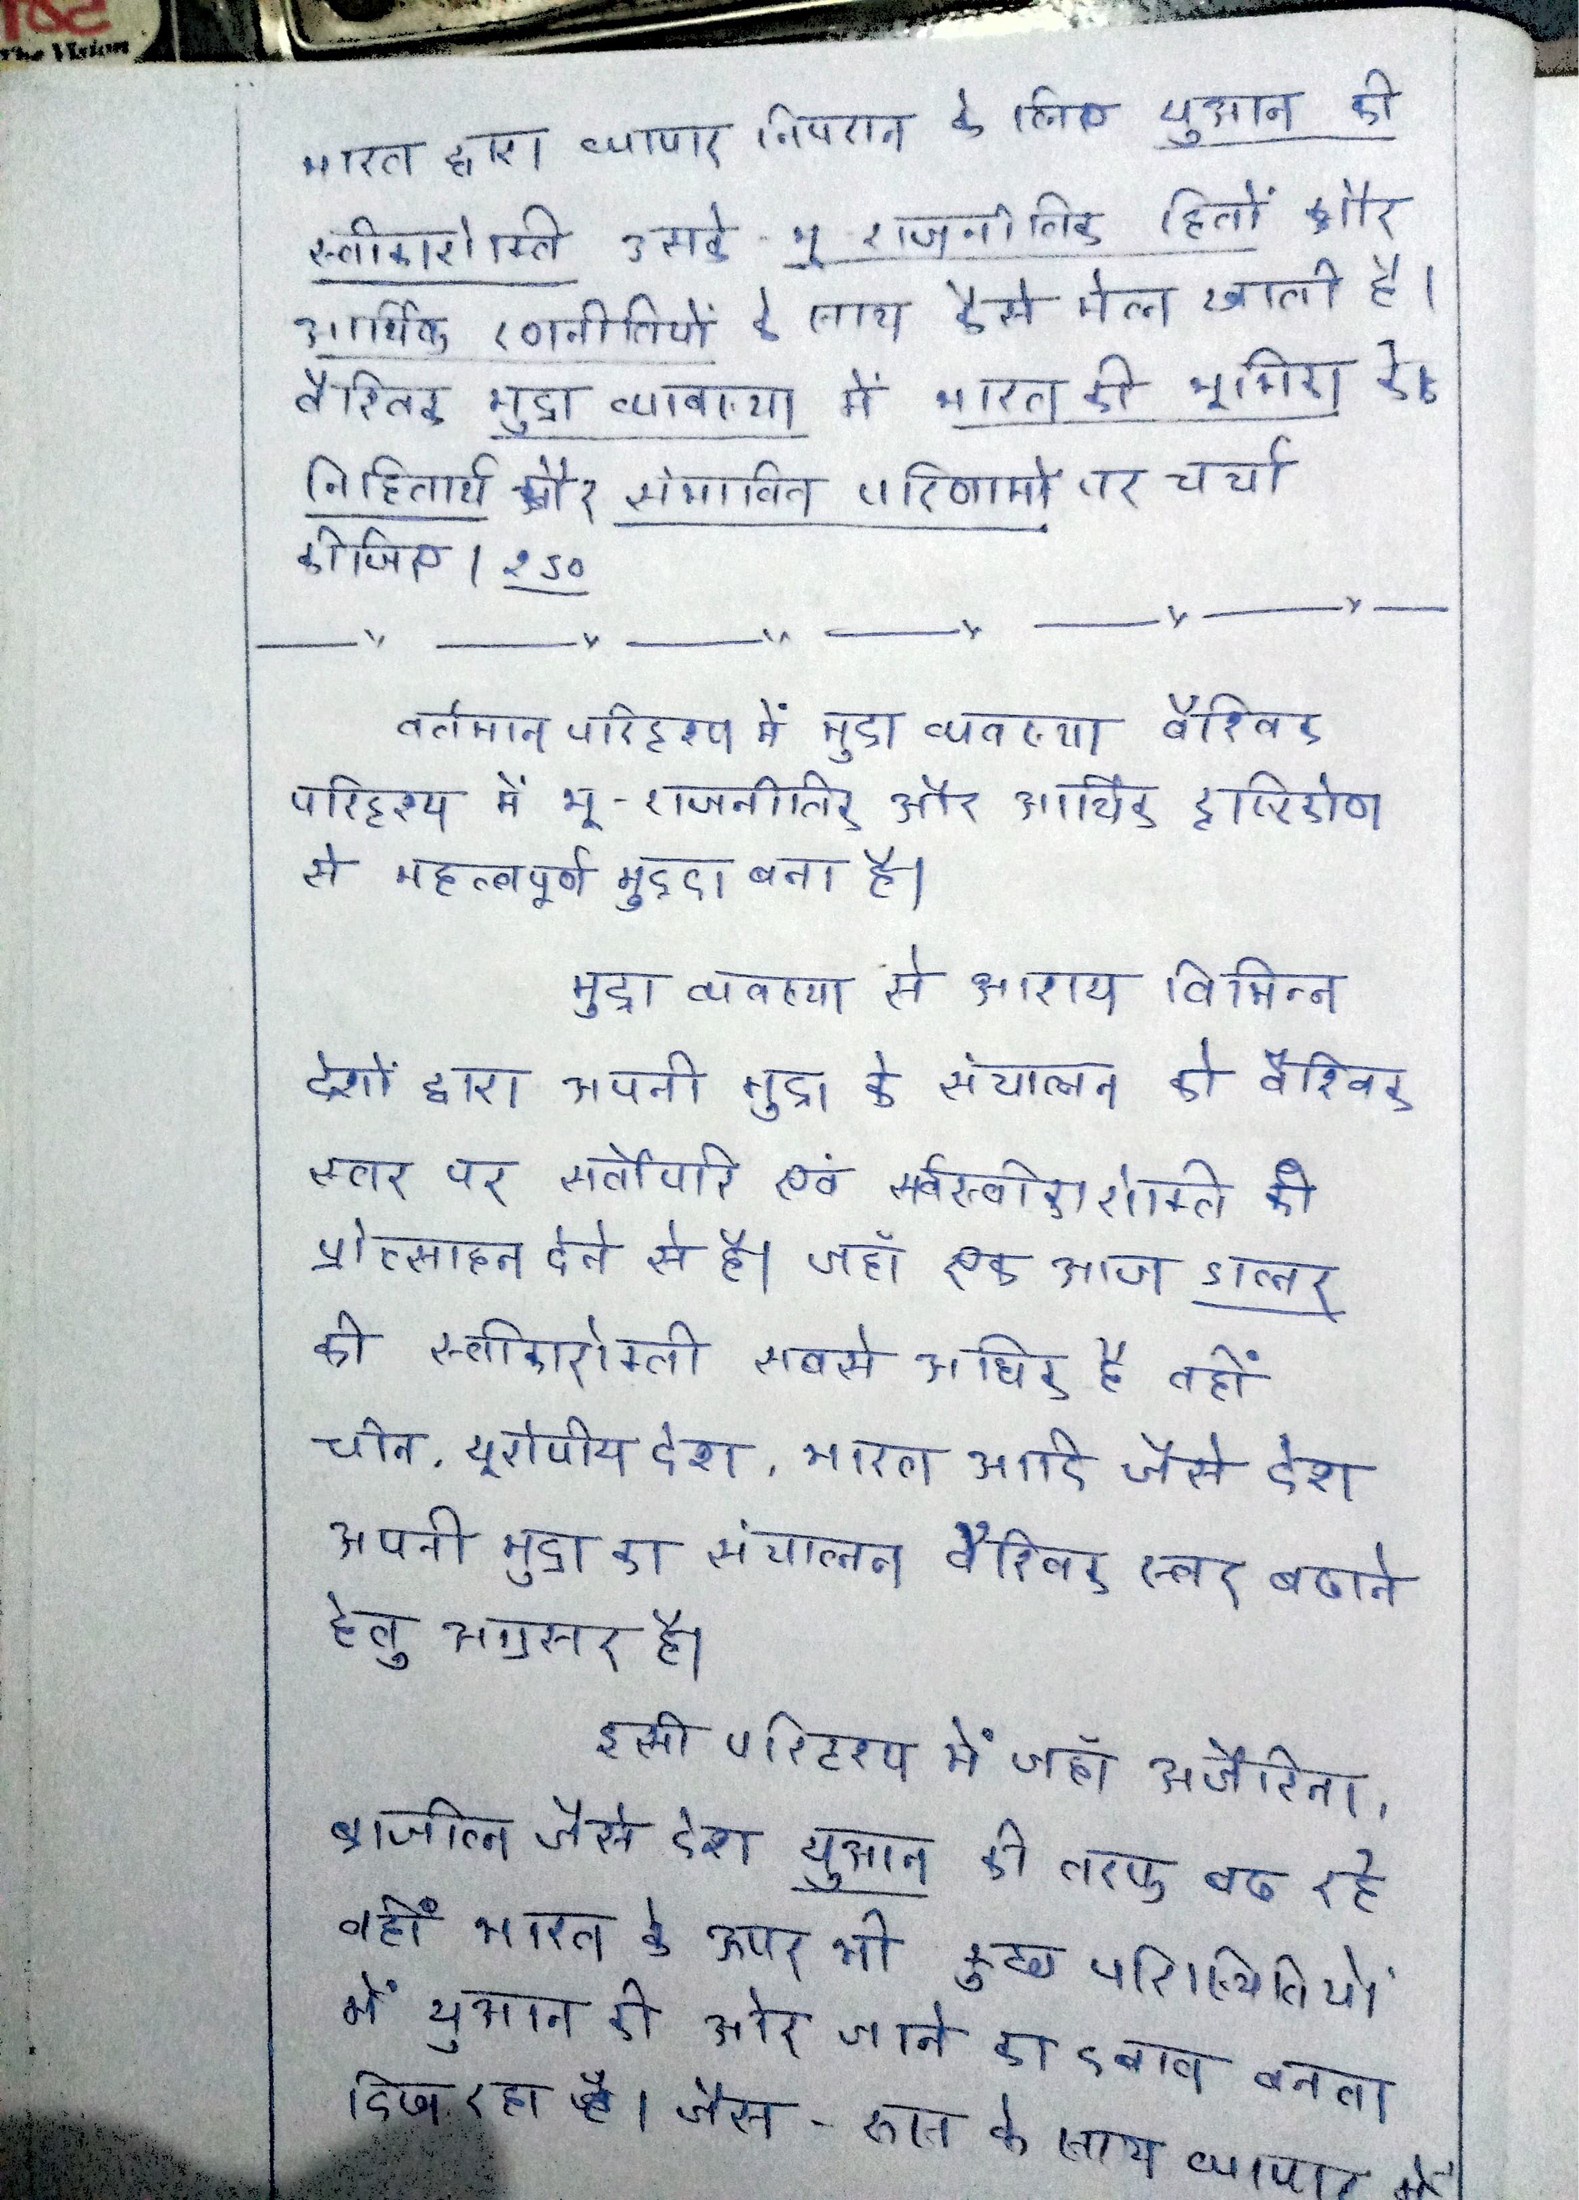 The Vision
भारत द्वारा व्यापार निपटान के लिए युआन की
स्वीकारोक्ति उसके भू राजनीतिक हितों और
आर्थिक रणनीतियों के साथ कैसे मेल खाती है।
वैश्विक मुद्रा व्यावस्था में भारत की भूमिका के
निहितार्थ और संभावित परिणामों पर चर्चा
कीजिए। २५०
वर्तमान परिदृश्य में मुद्रा व्यवस्था वैश्विक
परिदृश्य में भू-राजनीतिक और आर्थिक दृष्टिकोण
से महत्वपूर्ण मुद्दा बना है।
मुद्रा व्यवस्था से आशय विभिन्न
देशों द्वारा अपनी मुद्रा के संचालन को वैश्विक
स्तर पर सर्वोपरि एवं सर्वस्वीकारोक्ति की
प्रोत्साहन देने से है। जहाँ एक आज डालर
की स्वीकारोक्ती सबसे अधिक है वहीं
चीन, यूरोपीय देश, भारत आदि जैसे देश
अपनी मुद्रा का संचालन वैश्विक स्तर बढाने
हेतु अग्रसर है।
इसी परिदृश्य में जहाँ अर्जेंटिना,
ब्राजील जैसे देश युआन की तरफ बढ रहे
वहीं भारत के ऊपर भी कुछ परिस्थितियों
में युआन की ओर जाने का दबाव बनता
दिख रहा है। जैसे - रूस के साथ व्यापार में